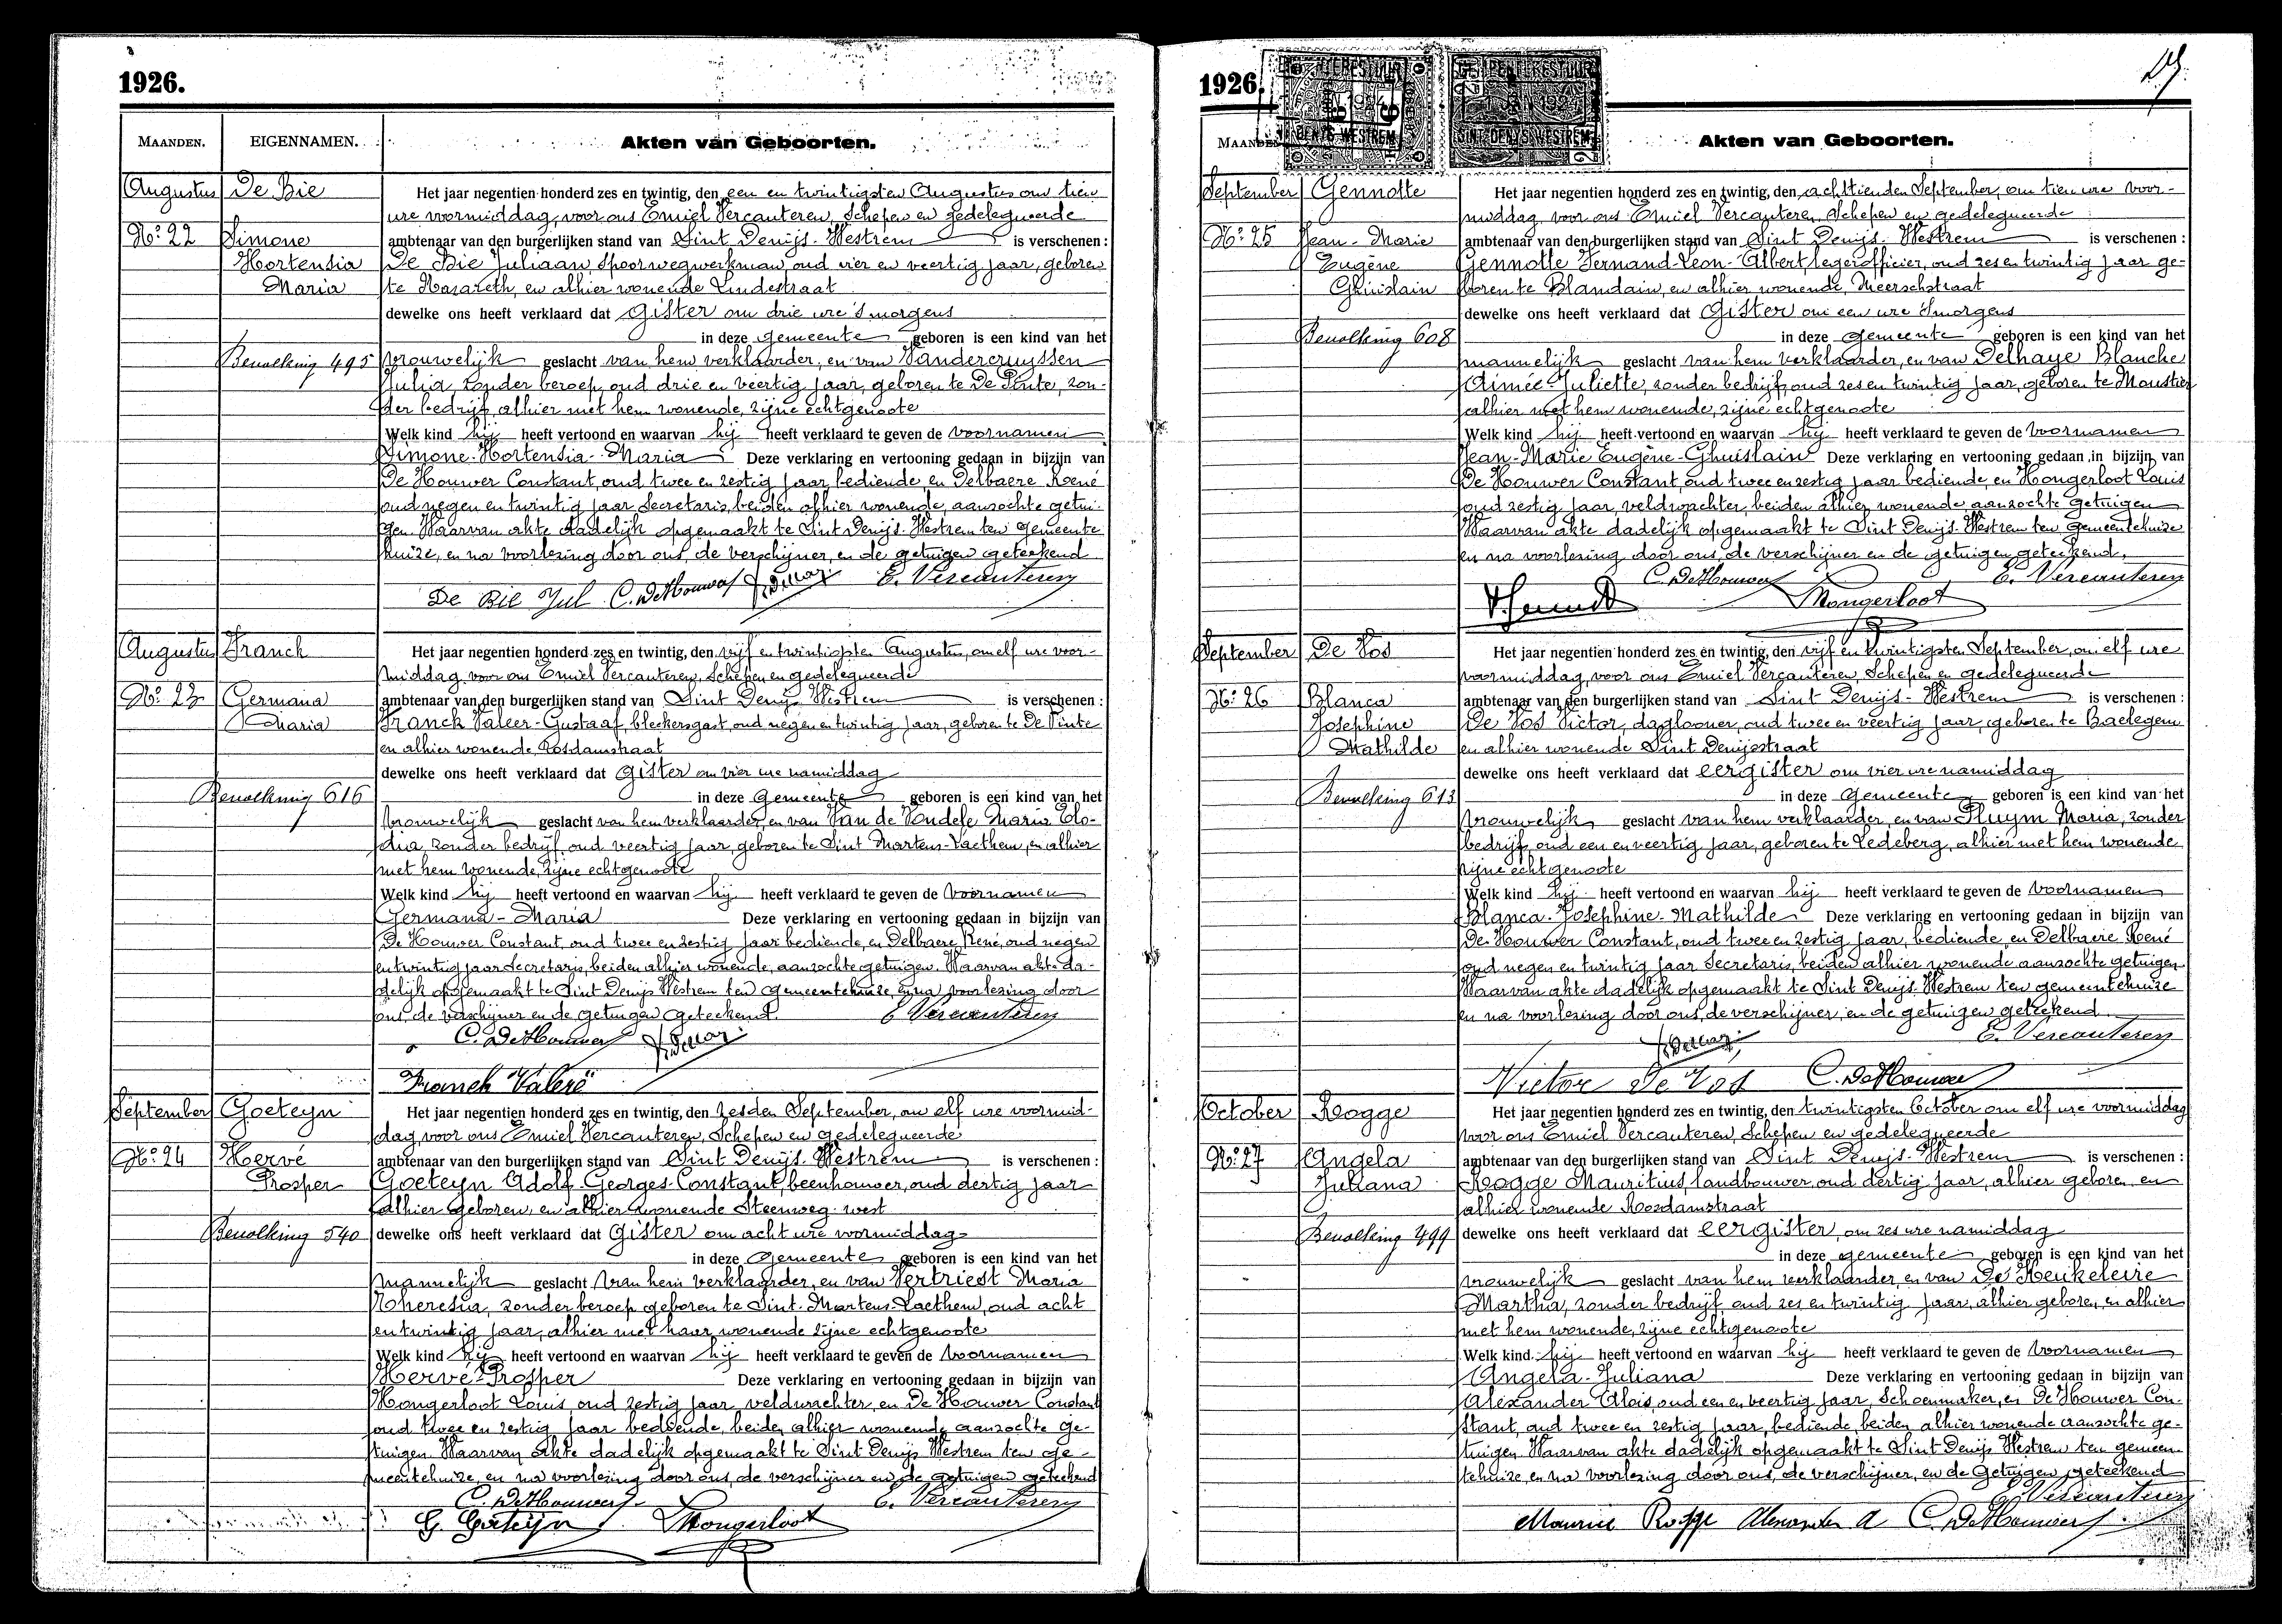 1926.
MAANDEN. EIGENNAMEN. Akten van Geboorten.
Augustus De Bie Het jaar negentien honderd zes en twintig, den een en twintigsten Augustus om tien
ure voormiddag, voor ons Emiel Vercauteren, Schepen en gedelegueerde
No. 22 Simone ambtenaar van den burgerlijken stand van Sint Denijs-Westrem is verschenen:
Hortensia De Bie Juliaan, Spoorwegwerkman, oud vier en veertig jaar, geboren
Maria te Nazareth, en alhier wonende Lindestraat
dewelke ons heeft verklaard dat Gister om drie ure 's morgens
in deze gemeente geboren is een kind van het
Bevolking 495 vrouwelijk geslacht van hem verklaarder, en van Vandercruyssen
Julia, zonder beroep, oud drie en veertig jaar, geboren te De Pinte, zon-
der bedrijf, alhier met hem wonende, zijne echtgenoote
Welk kind hij heeft vertoond en waarvan hij heeft verklaard te geven de voornamen
Simone-Hortensia-Maria Deze verklaring en vertooning gedaan in bijzijn van
De Houwer Constant, oud twee en zestig jaar bediende, en Delbaere René
oud negen en twintig jaar Secretaris, beiden alhier wonende, aanzochte getui-
gen. Waarvan akte dadelijk opgemaakt te Sint Denijs-Westrem ten gemeente
huize, en na voorlezing door ons, de verschijner, en de getuigen geteekend
De Bie Jul C. DeHouwer E. Vercauteren
Augustus Franck Het jaar negentien honderd zes en twintig, den vijf en twintigsten Augustus, om elf ure voor-
middag voor ons Emiel Vercauteren, Schepen en gedelegueerde
No. 23 Germana ambtenaar van den burgerlijken stand van Sint Denijs Westrem is verschenen:
Maria Franck Valeer-Gustaaf, bleekersgast, oud negen en twintig jaar, geboren te De Pinte
en alhier wonende Rosdamstraat
dewelke ons heeft verklaard dat Gister om vier ure namiddag
Bevolking 616 in deze Gemeente geboren is een kind van het
vrouwelijk geslacht van hem verklaarder, en van Van de Vondele Maria Elo-
dia, zonder bedrijf, oud veertig jaar, geboren te Sint Martens-Laethem, en alhier
met hem wonende, zijne echtgenoote
Welk kind hij heeft vertoond en waarvan hij heeft verklaard te geven de voornamen
Germana-Maria Deze verklaring en vertooning gedaan in bijzijn van
De Houwer Constant, oud twee en zestig jaar bediende, en Delbaere René, oud negen
en twintig jaar Secretaris, beiden alhier wonende, aanzochte getuigen. Waarvan akte da-
delijk opgemaakt te Sint Denijs Westrem ten Gemeentehuize, en na voorlezing door
ons, de verschijner en de getuigen geteekend. E Vercauteren
C. DeHouwer
Franck Valeré
September Goeteyn Het jaar negentien honderd zes en twintig, den zesden September, om elf ure voormid-
dag, voor ons Emiel Vercauteren, Schepen en gedelegueerde
No. 24 Hervé ambtenaar van den burgerlijken stand van Sint Denijs-Westrem is verschenen:
Prosper Goeteyn Adolf-Georges-Constant, beenhouwer, oud dertig jaar
alhier geboren, en alhier wonende Steenweg-west
Bevolking 540 dewelke ons heeft verklaard dat Gister om acht ure voormiddag
in deze Gemeente geboren is een kind van het
mannelijk geslacht van hem verklaarder, en van Vertriest Maria
Theresia, zonder beroep geboren te Sint-Martens-Laethem, oud acht
en twintig jaar, alhier met haar wonende zijne echtgenoote
Welk kind hij heeft vertoond en waarvan hij heeft verklaard te geven de voornamen
Hervé-Prosper Deze verklaring en vertooning gedaan in bijzijn van
Hongerloot Louis, oud zestig jaar veldwachter en De Houwer Constant
oud twee en zestig jaar bediende, beiden alhier wonende aanzochte ge-
tuigen. Waarvan akte dadelijk opgemaakt te Sint Denijs Westrem ten ge-
meentehuize, en na voorlezing door ons, de verschijner en de getuigen geteekend
C. DeHouwer E. Vercauteren
G. Goeteyn Hongerloot
1926.
Akten van Geboorten.
September Gennotte Het jaar negentien honderd zes en twintig, den achttienden September, om tien ure voor-
middag, voor ons Emiel Vercauteren, Schepen en gedelegueerde
No. 25 Jean-Marie ambtenaar van den burgerlijken stand van Sint Denijs-Westrem is verschenen:
Eugène Gennotte Fernand-Leon-Albert, legerofficier, oud zes en twintig jaar ge-
Ghuislain boren te Blandain, en alhier wonende, Meerschstraat
dewelke ons heeft verklaard dat Gister om een ure 's morgens
Bevolking 608 in deze Gemeente geboren is een kind van het
mannelijk geslacht van hem verklaarder, en van Delhaye Blanche
Aimée-Juliette, zonder bedrijf, oud zes en twintig jaar, geboren te Moustier
alhier met hem wonende, zijne echtgenoote
Welk kind hij heeft vertoond en waarvan hij heeft verklaard te geven de voornamen
Jean-Marie Eugène-Ghuislain Deze verklaring en vertooning gedaan in bijzijn van
De Houwer Constant, oud twee en zestig jaar bediende, en Hongerloot Louis
oud zestig jaar, veldwachter, beiden alhier wonende aanzochte getuigen
Waarvan akte dadelijk opgemaakt te Sint Denijs-Westrem ten gemeentehuize
en na voorlezing door ons, de verschijner en de getuigen geteekend.
C. DeHouwer E. Vercauteren
Hongerloot
September De Vos Het jaar negentien honderd zes en twintig, den vijf en twintigsten September, om elf ure
voormiddag, voor ons Emiel Vercauteren, Schepen en gedelegueerde
No. 26 Blanca ambtenaar van den burgerlijken stand van Sint Denijs-Westrem is verschenen:
Josephine De Vos Victor, daglooner, oud twee en veertig jaar, geboren te Baelegem
Mathilde en alhier wonende Sint Denijsstraat
dewelke ons heeft verklaard dat eergister om vier ure namiddag
Bevolking 613 in deze Gemeente geboren is een kind van het
vrouwelijk geslacht van hem verklaarder, en van Pluym Maria, zonder
bedrijf, oud een en veertig jaar, geboren te Ledeberg, alhier met hem wonende
zijne echtgenoote
Welk kind hij heeft vertoond en waarvan hij heeft verklaard te geven de voornamen
Blanca-Josephine-Mathilde Deze verklaring en vertooning gedaan in bijzijn van
De Houwer Constant, oud twee en zestig jaar, bediende en Delbaere René
oud negen en twintig jaar Secretaris, beiden alhier wonende aanzochte getuigen
Waarvan akte dadelijk opgemaakt te Sint Denijs Westrem ten gemeentehuize
en na voorlezing door ons, de verschijner, en de getuigen geteekend.
E. Vercauteren
Victor De Vos C. DeHouwer
October Rogge Het jaar negentien honderd zes en twintig, den twintigsten October om elf ure voormiddag
voor ons Emiel Vercauteren, Schepen en gedelegueerde
No. 27 Angela ambtenaar van den burgerlijken stand van Sint Denijs-Westrem is verschenen:
Juliana Rogge Mauritius, landbouwer, oud dertig jaar, alhier geboren, en
alhier wonende Rosdamstraat
Bevolking 499 dewelke ons heeft verklaard dat eergister, om zes ure namiddag
in deze gemeente geboren is een kind van het
vrouwelijk geslacht van hem verklaarder, en van De Keukeleire
Martha, zonder bedrijf, oud zes en twintig jaar, alhier geboren, en alhier
met hem wonende, zijne echtgenoote
Welk kind hij heeft vertoond en waarvan hij heeft verklaard te geven de voornamen
Angela-Juliana Deze verklaring en vertooning gedaan in bijzijn van
Alexander Alois, oud een en veertig jaar, Schoenmaker, en De Houwer Con-
stant, oud twee en zestig jaar, bediende, beiden alhier wonende aanzochte ge-
tuigen. Waarvan akte dadelijk opgemaakt te Sint Denijs Westrem ten gemeen-
tehuize, en na voorlezing door ons, de verschijner, en de getuigen geteekend
E. Vercauteren
Maurice Rogge Alexander A C. DeHouwer